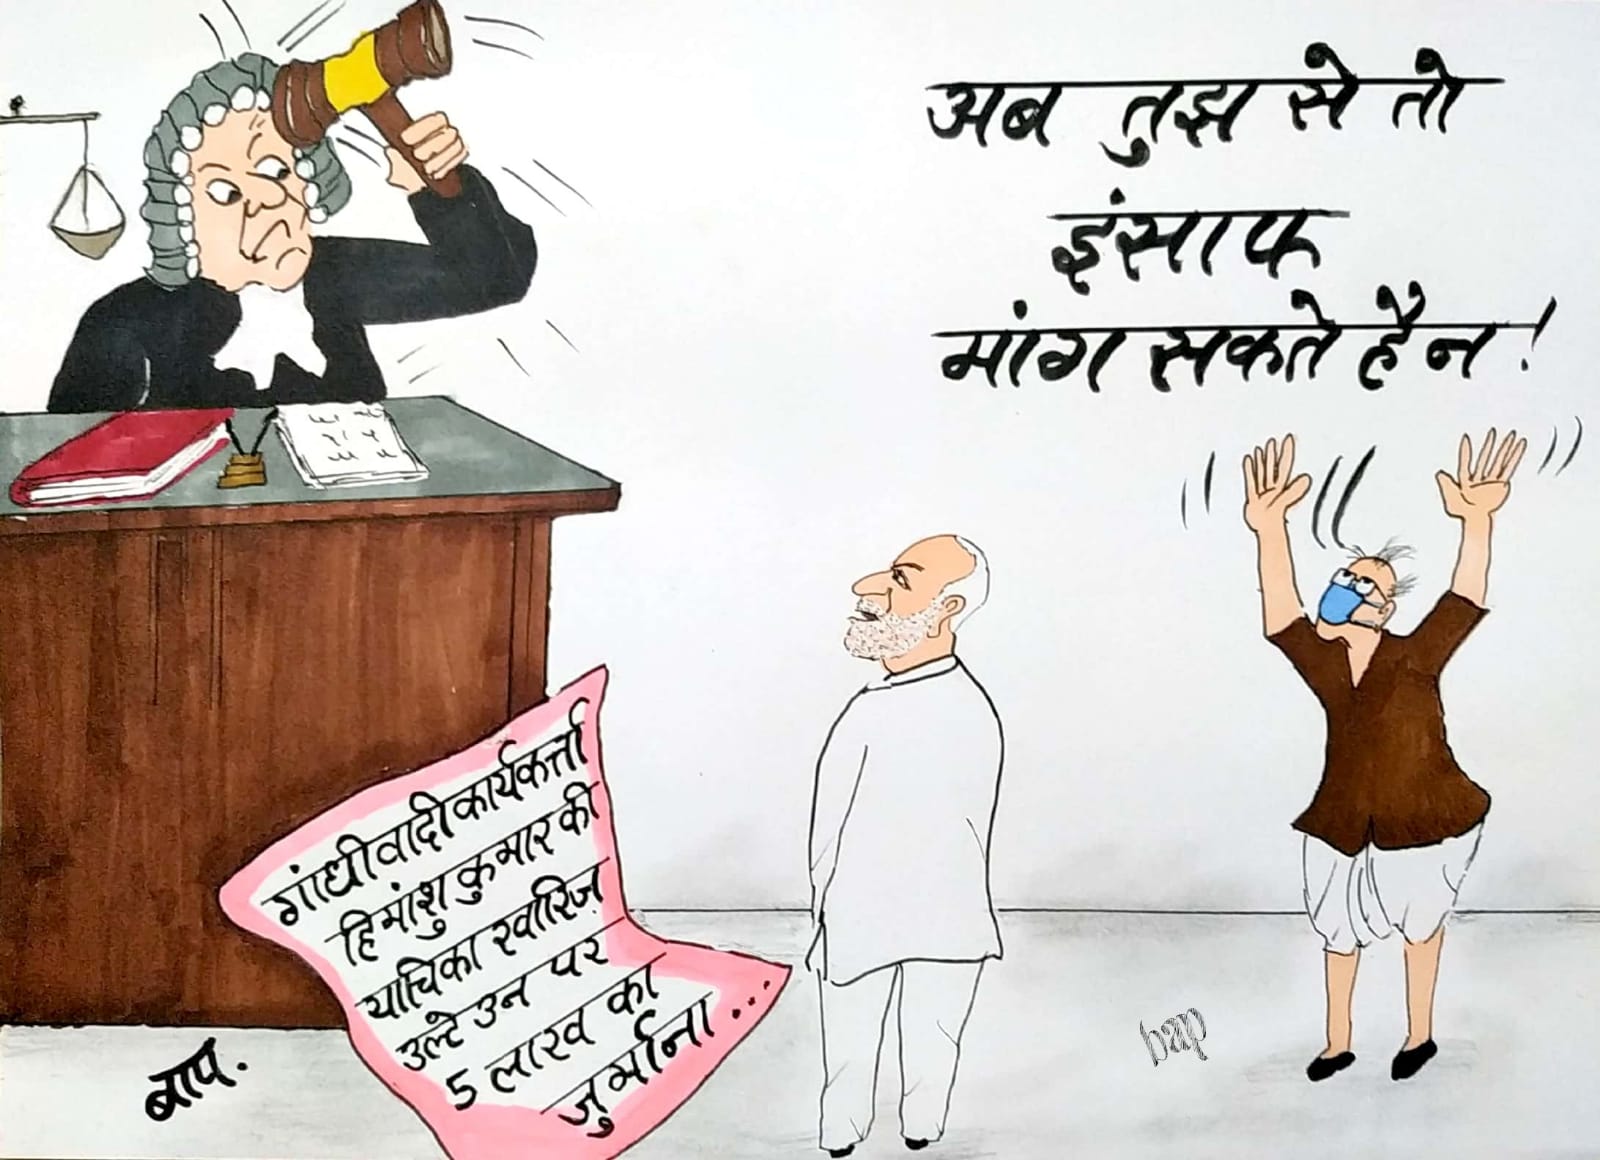 अब तुझ से तो
इंसाफ
मांग सकते है न !
गांधीवादी कार्यकर्त्ता
हिमांशु कुमार की
याचिका खारिज़
उल्टे उन पर
5 लाख का
जुर्माना...
बाप.
bap